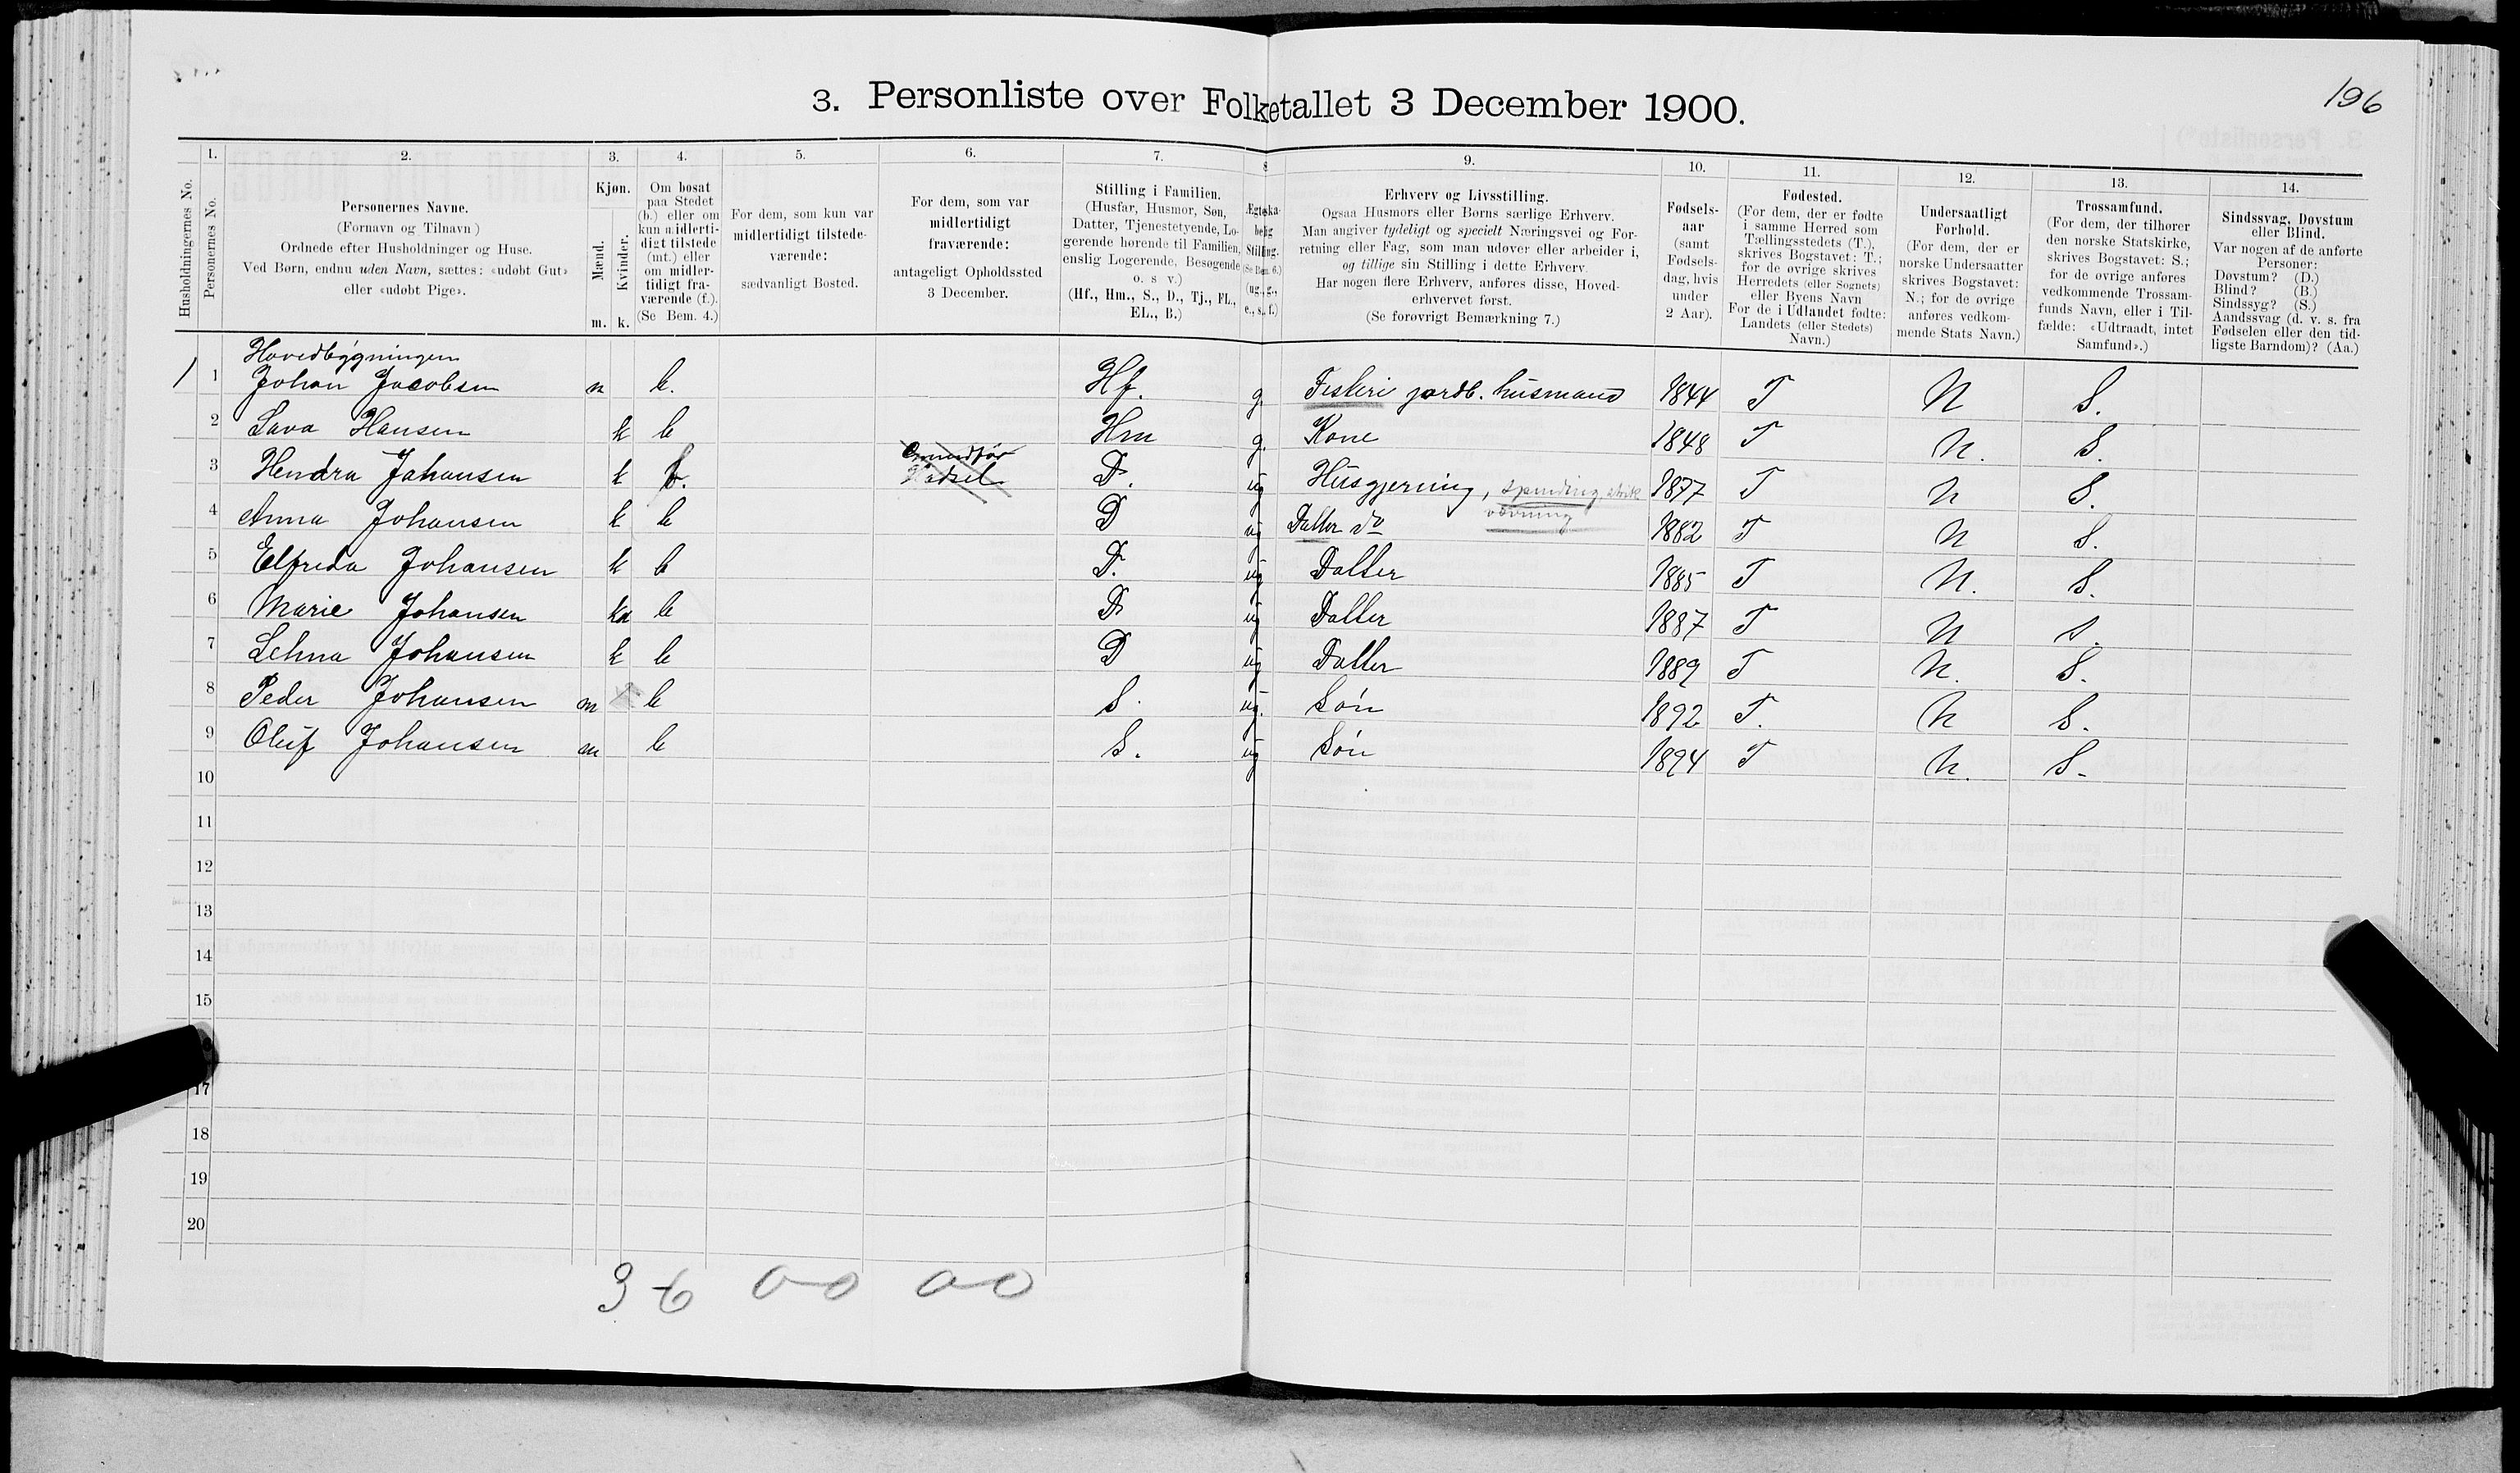 196
3. Personliste over Folketallet 3 December 1900.
1. 2. 3. 4. 5. 6. 7. 8 9. 10. 11. 12. 13. 14.
Husholdningernes No.
Personernes No.
Personernes Navne.
(Fornavn og Tilnavn)
Ordnede efter Husholdninger og Huse.
Ved Børn, endnu uden Navn, sættes: «udøbt Gut»
eller «udøbt Pige».
Kjøn.
Mænd.
Kvinder.
m. k.
Om bosat
paa Stedet
(b.) eller om
kun midlerti-
digt tilstede
(mt.) eller
om midler-
tidigt fra-
værende (f.).
(Se Bem. 4.)
For dem, som kun var
midlertidigt tilstede-
værende:
sædvanligt Bosted.
For dem, som var
midlertidigt
fraværende:
antageligt Opholdssted
3 December.
Stilling i Familien.
(Husfar, Husmor, Søn,
Datter, Tjenestetyende, Lo-
gerende hørende til Familien,
enslig Logerende, Besøgende
o. s v.)
(Hf., Hm., S., D., Tj., FL.,
EL., B.)
Ægteska-
belig
Stilling.
(Se Bem. 6.)
(ug., g.,
e., s., f.)
Erhverv og Livsstilling.
Ogsaa Husmors eller Børns særlige Erhverv.
Man angiver tydeligt og specielt Næringsvei og For-
retning eller Fag, som man udøver eller arbeider i,
og tillige sin Stilling i dette Erhverv.
Har nogen flere Erhverv, anføres disse, Hoved-
erhvervet først.
(Se forøvrigt Bemærkning 7.)
Fødsels-
aar
(samt
Fødsels-
dag, hvis
under
2 Aar).
Fødested.
(For dem, der er fødte
i samme Herred som
Tællingsstedets (T.),
skrives Bogstavet: T.;
for de øvrige skrives
Herredets (eller Sognets)
eller Byens Navn
For de i Udlandet fødte:
Landets (eller Stedets)
Navn.)
Undersaatligt
Forhold.
(For dem, der er
norske Undersaatter
skrives Bogstavet:
N.; for de øvrige
anføres vedkom-
mende Stats Navn.)
Trossamfund.
(For dem, der tilhører
den norske Statskirke,
skrives Bogstavet: S.;
for de øvrige anføres
vedkommende Trossam-
funds Navn, eller i Til-
fælde: «Udtraadt, intet
Samfund».)
Sindssvag, Døvstum
eller Blind.
Var nogen af de anførte
Personer:
Døvstum? (D.)
Blind? (B.)
Sindssyg? (S.)
Aandssvag (d. v. s. fra
Fødselen eller den tid-
ligste Barndom)? (Aa.)
Hovedbygningen
1 1 Johan Jacobsen m b. Hf. g. Fiskeri jordb. husmand 1844 T N S.
2 Lava Hansen k b Hm g. Kone 1848 T N. S.
3 Hendra Johansen k b. Hadsel D. ug Husgjerning, spinding, strik 1877 T N S.
vævning
4 Anna Johansen k b D ug Datter do 1882 T N S.
5 Elfreda Johansen k b D. ug Datter 1885 T N. S.
6 Marie Johansen k b D ug Datter 1887 T N S.
7 Lehna Johansen k b D ug Datter 1889 T N. S.
8 Peder Johansen m b S. ug. Søn 1892 T. N S.
9 Oluf Johansen m b S. ug Søn 1894 T N. S.
10
11
12
13
14
15
17
18
19
20
3 6 0-0 0-0